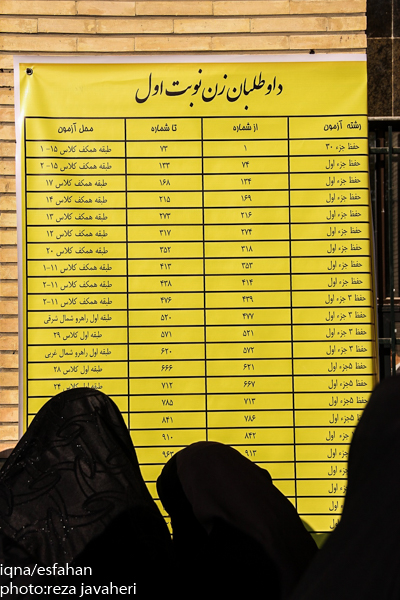 داوطلبان زن نوبت اول
رشته آزمون از شماره تا شماره محل آزمون
حفظ جزء ۳۰ ۱ ۷۳ طبقه همکف کلاس ۱۵-۱
حفظ جزء اول ۷۴ ۱۳۳ طبقه همکف کلاس ۱۵-۲
حفظ جزء اول ۱۳۴ ۱۶۸ طبقه همکف کلاس ۱۷
حفظ جزء اول ۱۶۹ ۲۱۵ طبقه همکف کلاس ۱۴
حفظ جزء اول ۲۱۶ ۲۷۳ طبقه همکف کلاس ۱۳
حفظ جزء اول ۲۷۴ ۳۱۷ طبقه همکف کلاس ۱۲
حفظ جزء اول ۳۱۸ ۳۵۲ طبقه همکف کلاس ۲۰
حفظ جزء اول ۳۵۳ ۴۱۳ طبقه همکف کلاس ۱۱-۱
حفظ جزء اول ۴۱۴ ۴۳۸ طبقه همکف کلاس ۱۱-۲
حفظ ۳ جزء اول ۴۳۹ ۴۷۶ طبقه همکف کلاس ۱۱-۲
حفظ ۳ جزء اول ۴۷۷ ۵۲۰ طبقه اول راهرو شمال شرقی
حفظ ۳ جزء اول ۵۲۱ ۵۷۱ طبقه اول کلاس ۲۹
حفظ ۳ جزء اول ۵۷۲ ۶۲۰ طبقه اول راهرو شمال غربی
حفظ ۵جزء اول ۶۲۱ ۶۶۶ طبقه اول کلاس ۲۸
حفظ ۵جزء اول ۶۶۷ ۷۱۲ طبقه اول کلاس ۲۴
حفظ ۵جزء اول ۷۱۳ ۷۸۵
حفظ ۵جزء اول ۷۸۶ ۸۴۱
جزء اول ۸۴۲ ۹۱۰
جزء اول ۹۱۳
iqna/esfahan
photo:reza javaheri